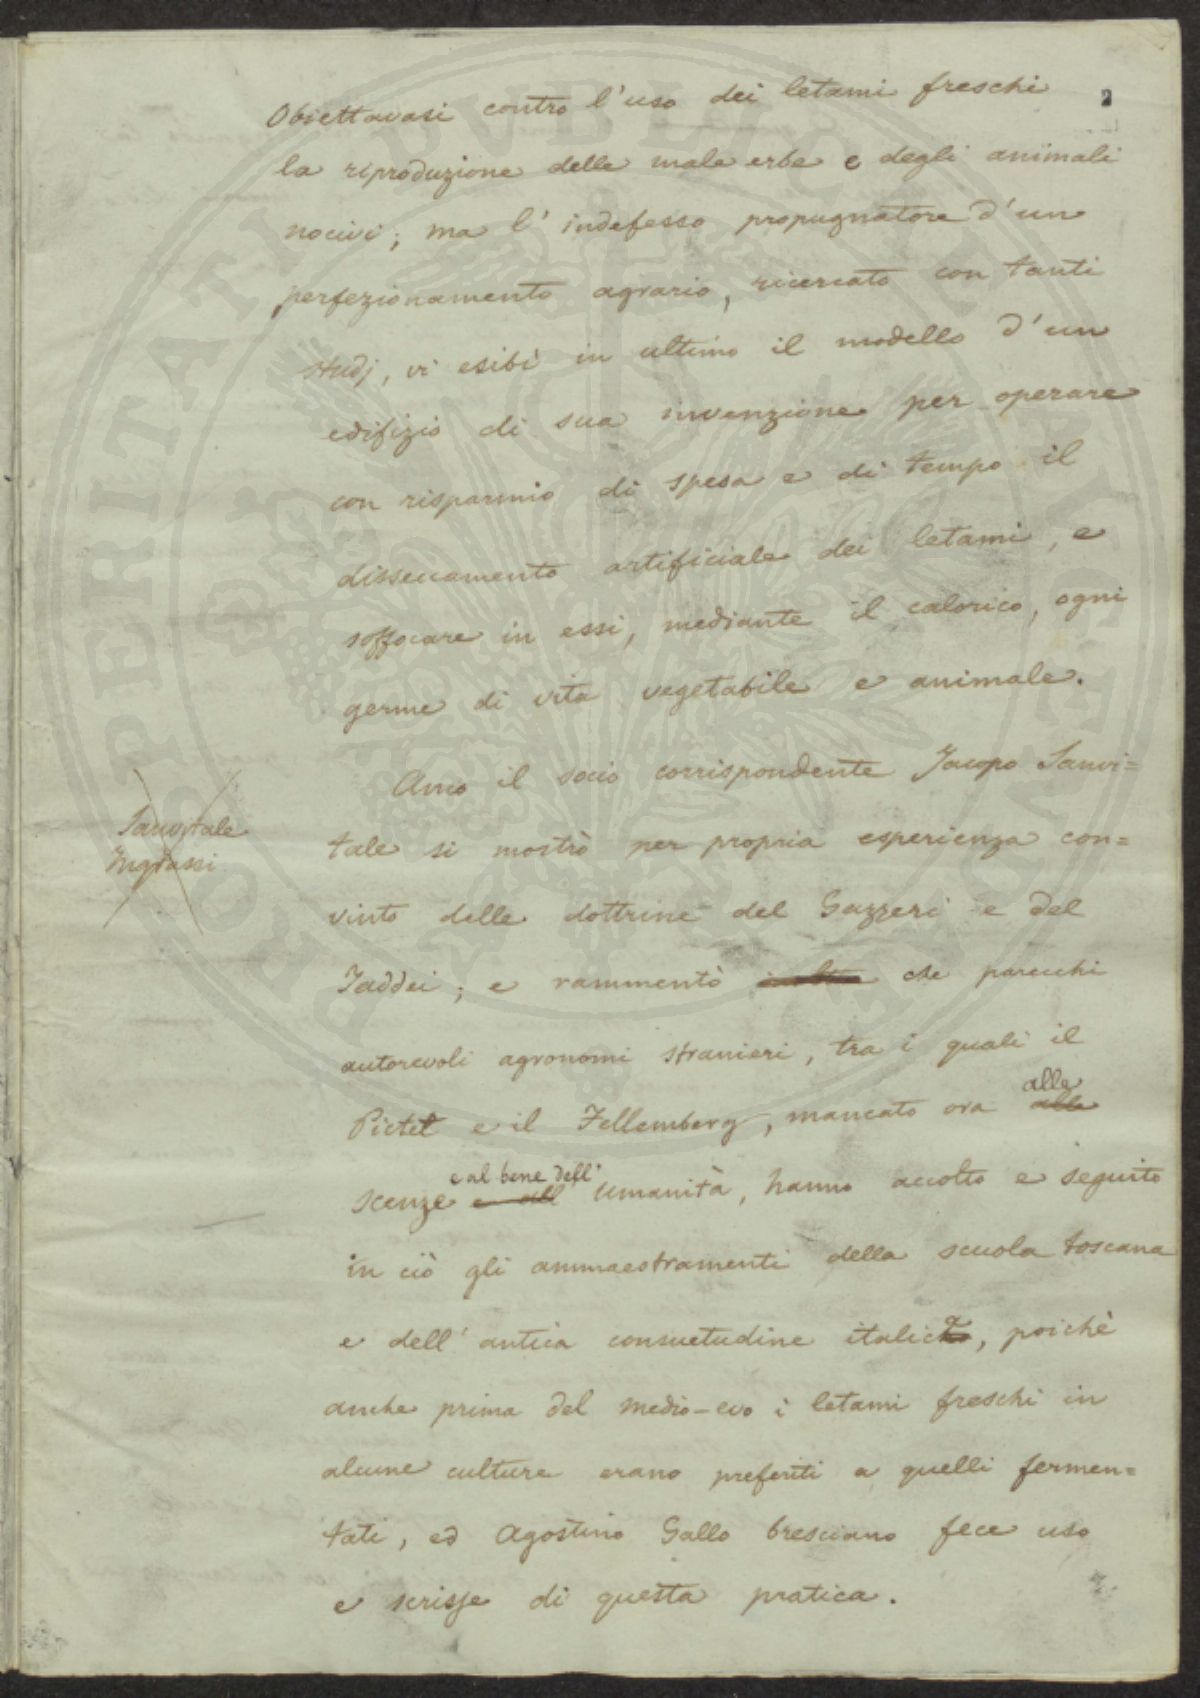 2
Obiettavasi contro l'uso dei letami freschi
la riproduzione delle male erbe e degli animali
nocivi; ma l'indefesso propugnatore d'un
perfezionamento agrario, ricercato con tanti
studj, vi esibì in ultimo il modello d'un
edifizio di sua invenzione per operare
con risparmio di spesa e di tempo il
disseccamento artificiale dei letami, e
soffocare in essi, mediante il calorico, ogni
germe di vita vegetabile e animale.
Anco il socio corrispondente Jacopo Sanvi=
Sanvitale
Ingrassi
tale si mostrò per propria esperienza con=
vinto delle dottrine del Gazzeri e del
Taddei; e rammentò che parecchi
autorevoli agronomi stranieri, tra i quali il
alle
Pictet e il Fellemberg, mancato ora alle
e al bene dell'
scenze e all' Umanità, hanno accolto e seguito
in ciò gli ammaestramenti della scuola toscana
e dell'antica consuetudine italica, poichè
anche prima del medio-evo i letami freschi in
alcune culture erano preferiti a quelli fermen=
tati, ed Agostino Gallo bresciano fece uso
e scrisse di questa pratica.
PROSPERITATI PUBLICAE AUGENDAE